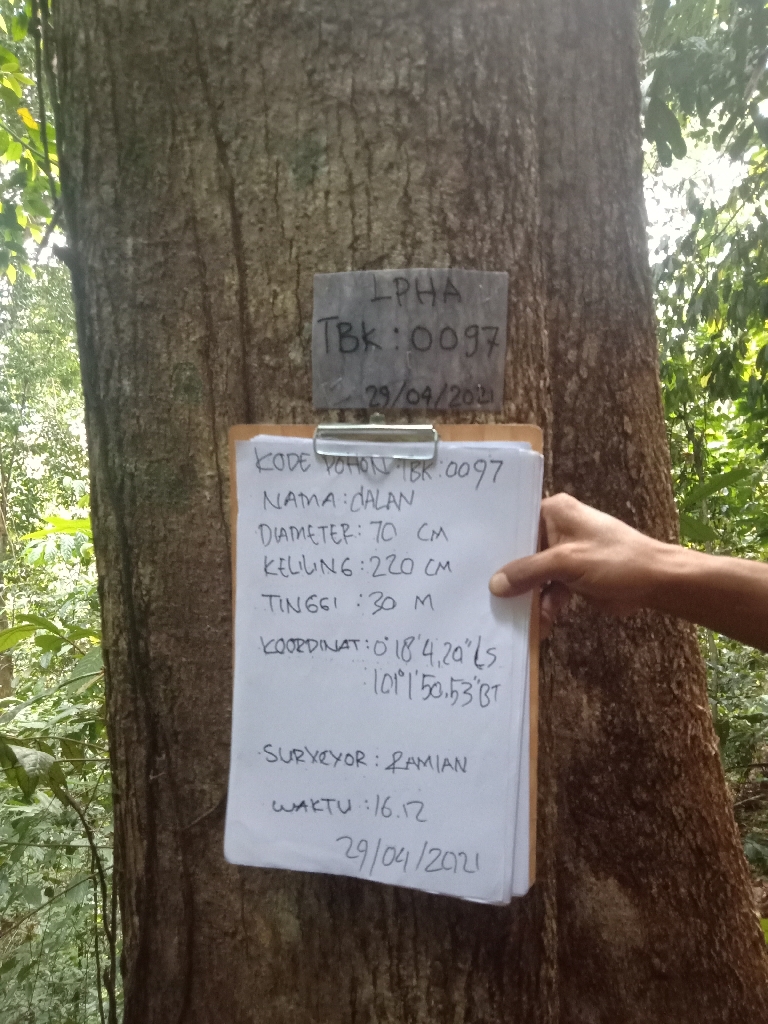 LPHA
TBK:0097
29/04/2021
KODE POHON:TBK:0097
NAMA:dALAN
DIAMETER:70 CM
KELILING:220 CM
TINGGI :30 M
KOORDINAT:0°18'4,20"LS
:101°1'50,53"BT
SURVEYOR:RAMIAN
WAKTU:16.12
29/04/2021